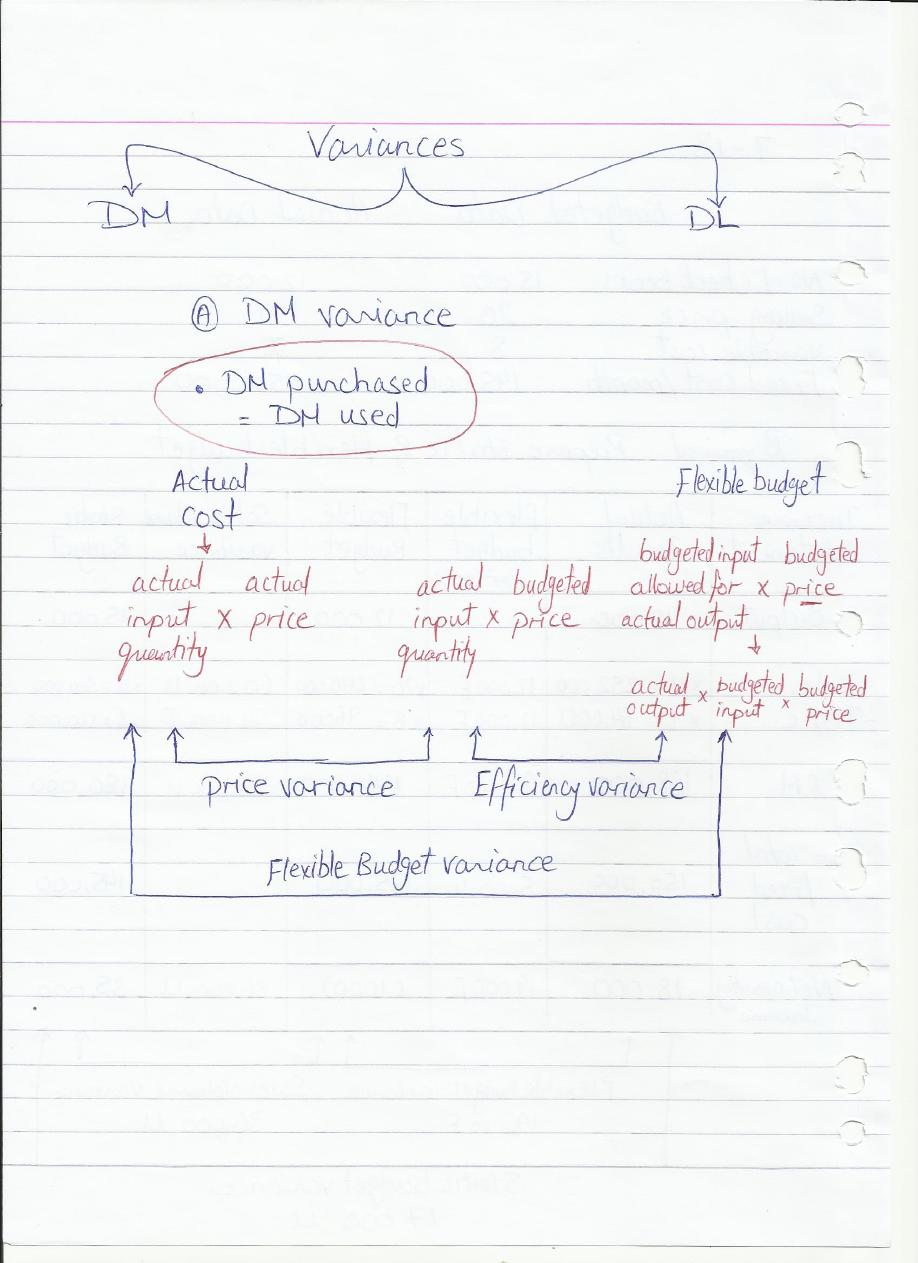 Variances
DM DL
Ⓐ DM variance
• DM purchased
= DM used
Actual Flexible budget
cost
budgeted input budgeted
actual actual actual budgeted allowed for × price
input × price input × price actual output
quantity quantity
actual × budgeted × budgeted
output input price
price variance Efficiency variance
Flexible Budget variance